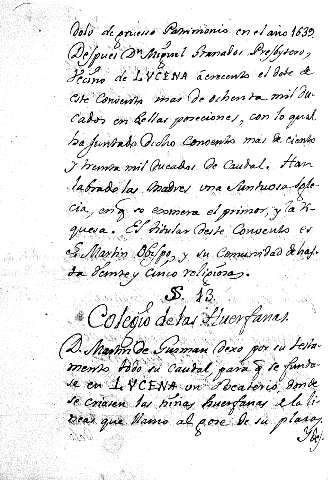 dolo de grueso Patrimonio en el año 1639.
Despues Dn. Miguel Granados Presbytero,
Vecino de LVCENA acrecento el dote de
este Convento mas de ochenta mil du-
cados en bellas poseciones, con lo qual
ha juntado dicho Convento mas de ciento
y treinta mil ducados de Caudal. Han
labrado las Madres una suntuosa Igle-
cia, en q se esmera el primor, y la ri-
quesa. El titular deste Convento es
Sn. Martin Obispo, y su comunidad de has-
ta veinte y cinco religiosas.
§. 13.
Colegio de las Huerfanas.
D. Martin de Gusman dexo por su testa-
mento todo su caudal para q se funda-
se en LVCENA un Beaterio, donde
se criasen las niñas huerfanas de la
que llamo al goze de su plazas